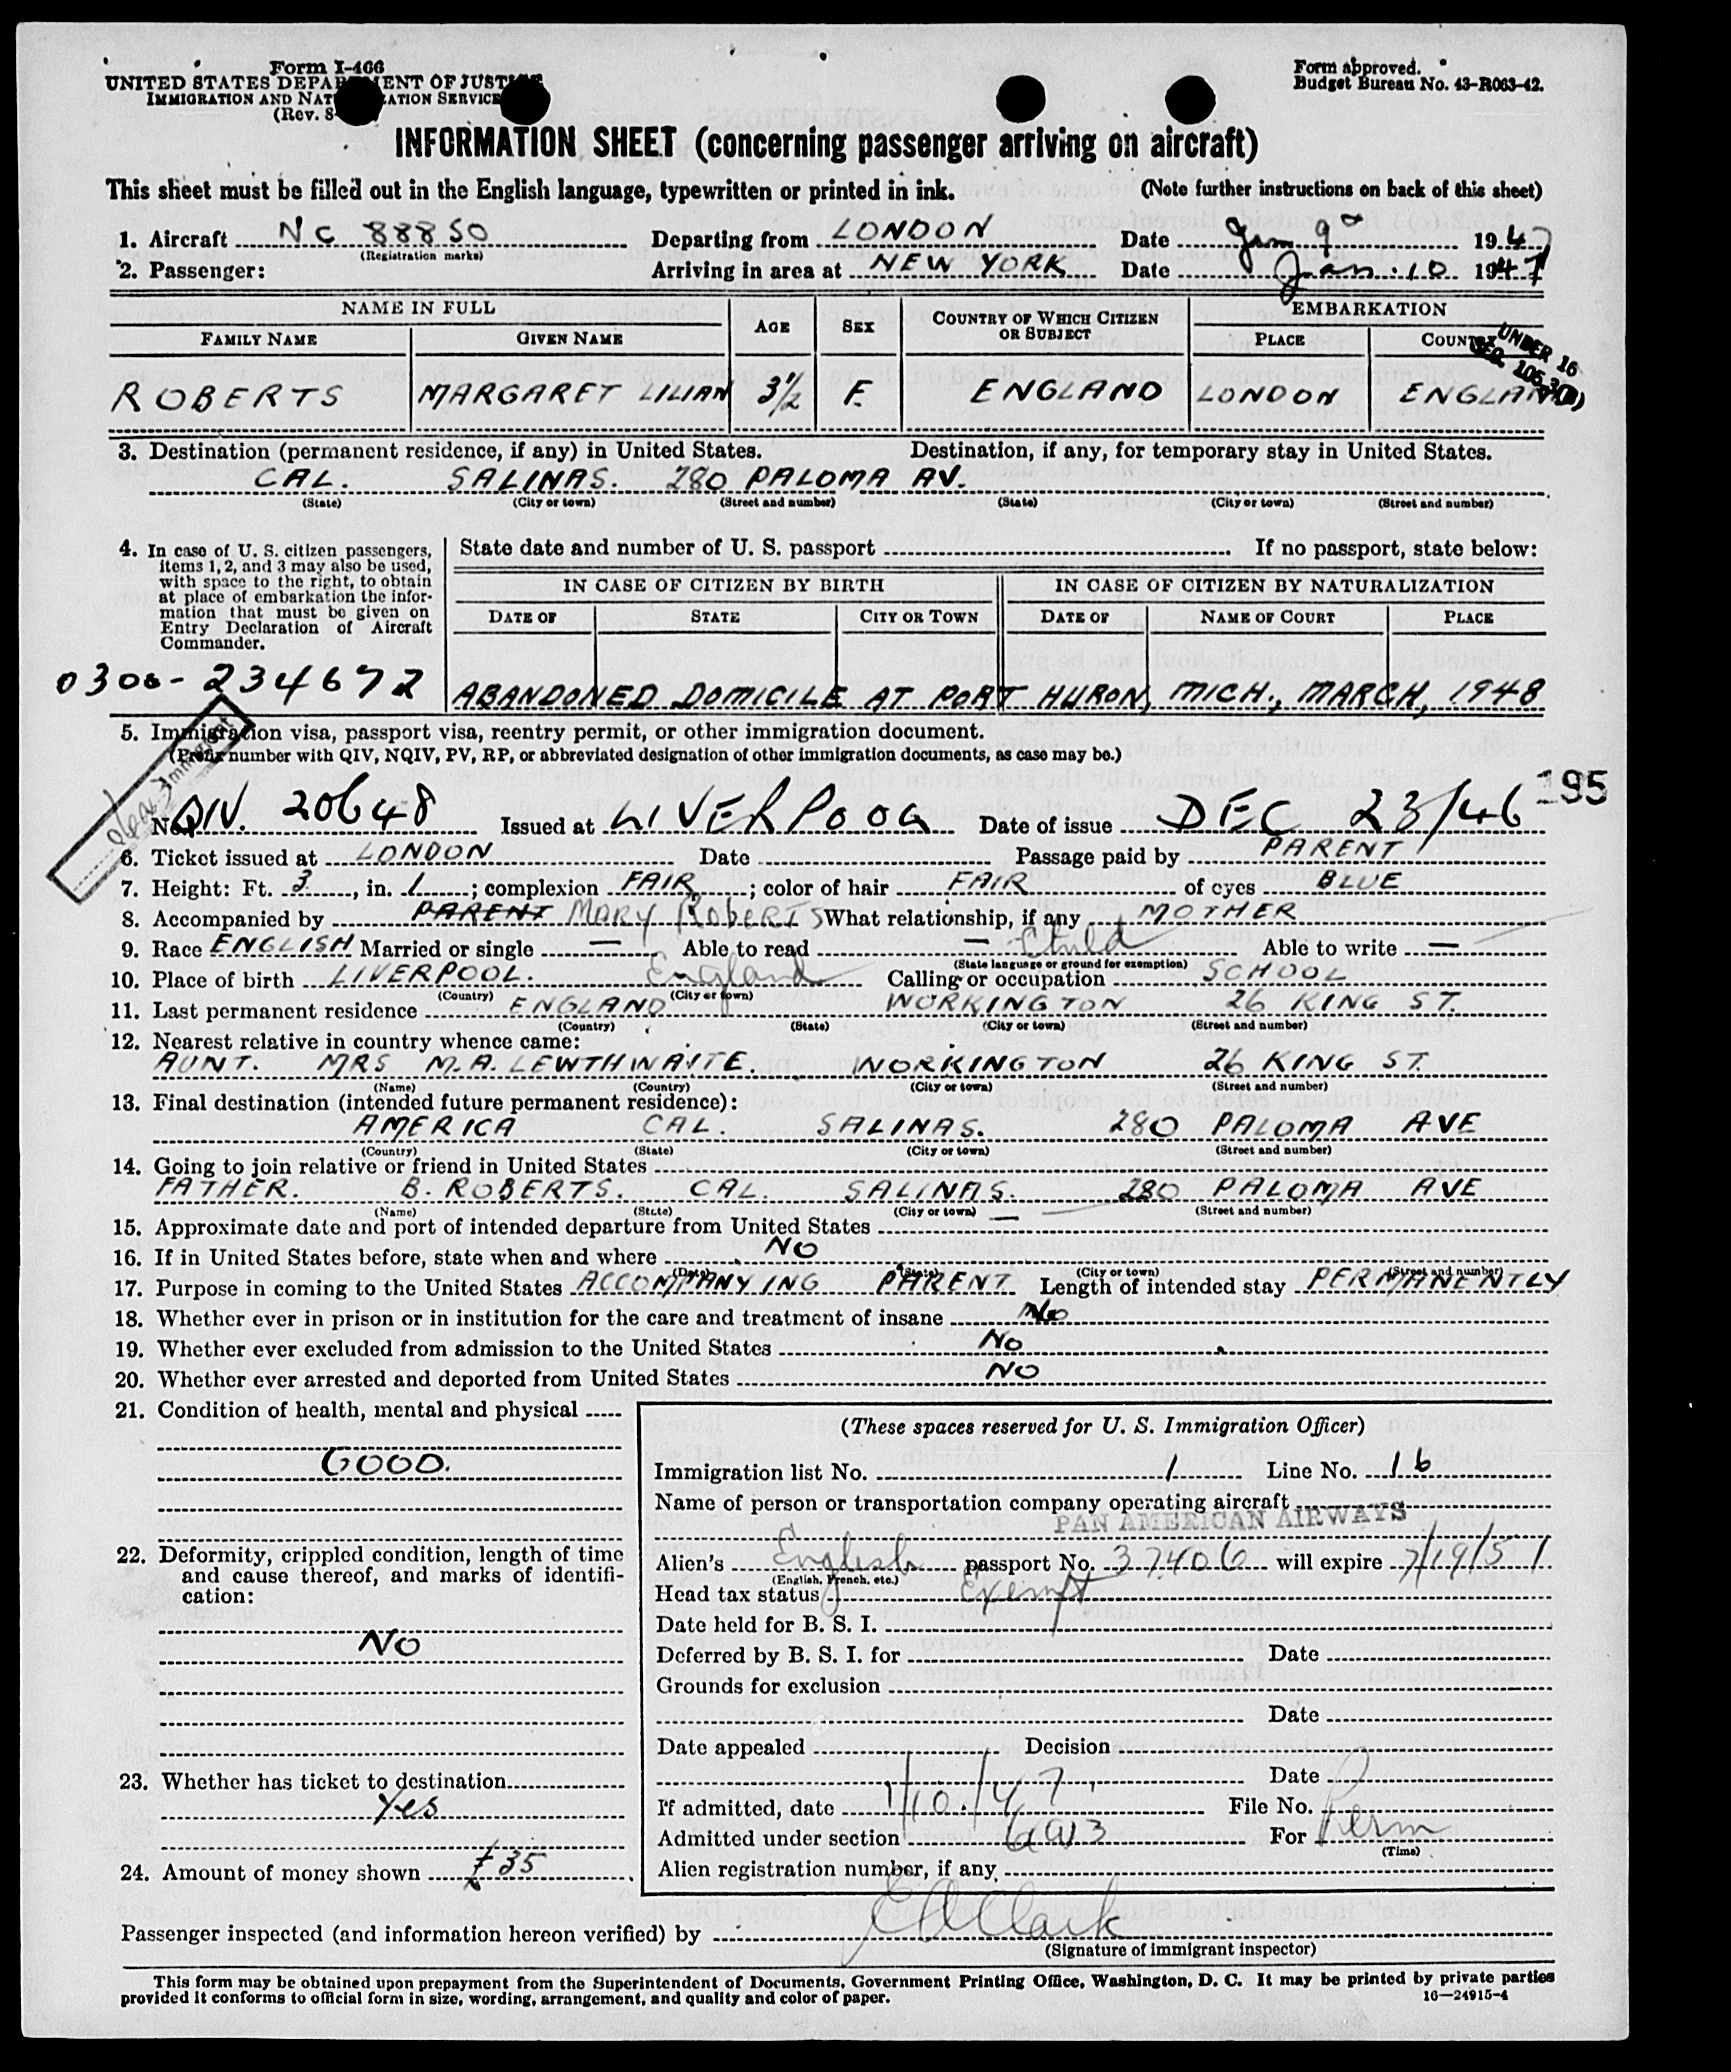 Form I-466
UNITED STATES DEPARTMENT OF JUSTICE
IMMIGRATION AND NATURALIZATION SERVICE
(Rev. 8-
Form approved.
Budget Bureau No. 43-R063-42.
INFORMATION SHEET (concerning passenger arriving on aircraft)
This sheet must be filled out in the English language, typewritten or printed in ink. (Note further instructions on back of this sheet)
1. Aircraft NC 88850 Departing from LONDON Date Jan 9 1947
(Registration marks)
2. Passenger: Arriving in area at NEW YORK Date Jan. 10 1947
NAME IN FULL AGE SEX COUNTRY OF WHICH CITIZEN OR SUBJECT EMBARKATION
FAMILY NAME GIVEN NAME PLACE COUNTRY
UNDER 16
SEQ. 105.3(B)
ROBERTS MARGARET LILIAN 3 1/2 F. ENGLAND LONDON ENGLAND
3. Destination (permanent residence, if any) in United States. Destination, if any, for temporary stay in United States.
CAL. SALINAS. 280 PALOMA AV.
(State) (City or town) (Street and number) (State) (City or town) (Street and number)
4. In case of U. S. citizen passengers, items 1, 2, and 3 may also be used, with space to the right, to obtain at place of embarkation the information that must be given on Entry Declaration of Aircraft Commander.
State date and number of U. S. passport If no passport, state below:
IN CASE OF CITIZEN BY BIRTH IN CASE OF CITIZEN BY NATURALIZATION
DATE OF STATE CITY OR TOWN DATE OF NAME OF COURT PLACE
0300-234672 ABANDONED DOMICILE AT PORT HURON, MICH., MARCH, 1948
5. Immigration visa, passport visa, reentry permit, or other immigration document.
(Prefix number with QIV, NQIV, PV, RP, or abbreviated designation of other immigration documents, as case may be.)
Immigrant
195
No. QIV. 20648 Issued at LIVERPOOL Date of issue DEC 23/46
6. Ticket issued at LONDON Date Passage paid by PARENT
7. Height: Ft. 3, in. 1; complexion FAIR; color of hair FAIR of eyes BLUE
8. Accompanied by PARENT MARY ROBERTS What relationship, if any MOTHER
9. Race ENGLISH Married or single — Able to read — Child Able to write —
(State language or ground for exemption)
10. Place of birth LIVERPOOL. England Calling or occupation SCHOOL
(Country) (City or town)
11. Last permanent residence ENGLAND WORKINGTON 26 KING ST.
(Country) (State) (City or town) (Street and number)
12. Nearest relative in country whence came:
AUNT. MRS M.A. LEWTHWAITE. WORKINGTON 26 KING ST.
(Name) (Country) (City or town) (Street and number)
13. Final destination (intended future permanent residence):
AMERICA CAL. SALINAS. 280 PALOMA AVE
(Country) (State) (City or town) (Street and number)
14. Going to join relative or friend in United States
FATHER. B. ROBERTS. CAL. SALINAS. 280 PALOMA AVE
(Name) (State) (City or town) (Street and number)
15. Approximate date and port of intended departure from United States —
16. If in United States before, state when and where NO
(Date) (State) (City or town) (Street and number)
17. Purpose in coming to the United States ACCOMPANYING PARENT Length of intended stay PERMANENTLY
18. Whether ever in prison or in institution for the care and treatment of insane No
19. Whether ever excluded from admission to the United States NO
20. Whether ever arrested and deported from United States NO
21. Condition of health, mental and physical
GOOD.
22. Deformity, crippled condition, length of time and cause thereof, and marks of identification:
NO
23. Whether has ticket to destination
Yes
24. Amount of money shown £35
(These spaces reserved for U. S. Immigration Officer)
Immigration list No. 1 Line No. 16
Name of person or transportation company operating aircraft
PAN AMERICAN AIRWAYS
Alien's English passport No. 37406 will expire 7/19/51
(English, French, etc.)
Head tax status Exempt
Date held for B. S. I.
Deferred by B. S. I. for Date
Grounds for exclusion
Date
Date appealed Decision
Date
If admitted, date 1/10/47 File No.
Admitted under section 6(a)3 For Perm
(Time)
Alien registration number, if any
Passenger inspected (and information hereon verified) by Clark
(Signature of immigrant inspector)
This form may be obtained upon prepayment from the Superintendent of Documents, Government Printing Office, Washington, D. C. It may be printed by private parties
provided it conforms to official form in size, wording, arrangement, and quality and color of paper. 16—24915-4